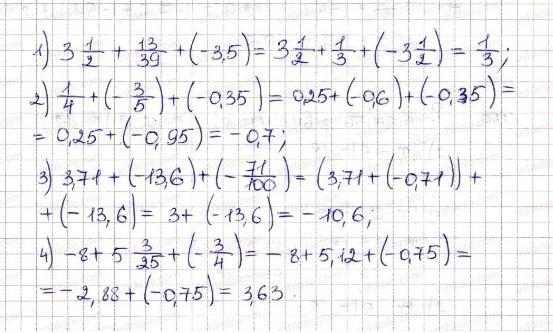 1) 3 1/2 + 13/39 + (-3,5) = 3 1/2 + 1/3 + (-3 1/2) = 1/3;
2) 1/4 + (-3/5) + (-0,35) = 0,25 + (-0,6) + (-0,35) =
= 0,25 + (-0,95) = -0,7;
3) 3,71 + (-13,6) + (-71/100) = (3,71 + (-0,71)) +
+ (-13,6) = 3 + (-13,6) = -10,6;
4) -8 + 5 3/25 + (-3/4) = -8 + 5,12 + (-0,75) =
= -2,88 + (-0,75) = 3,63.